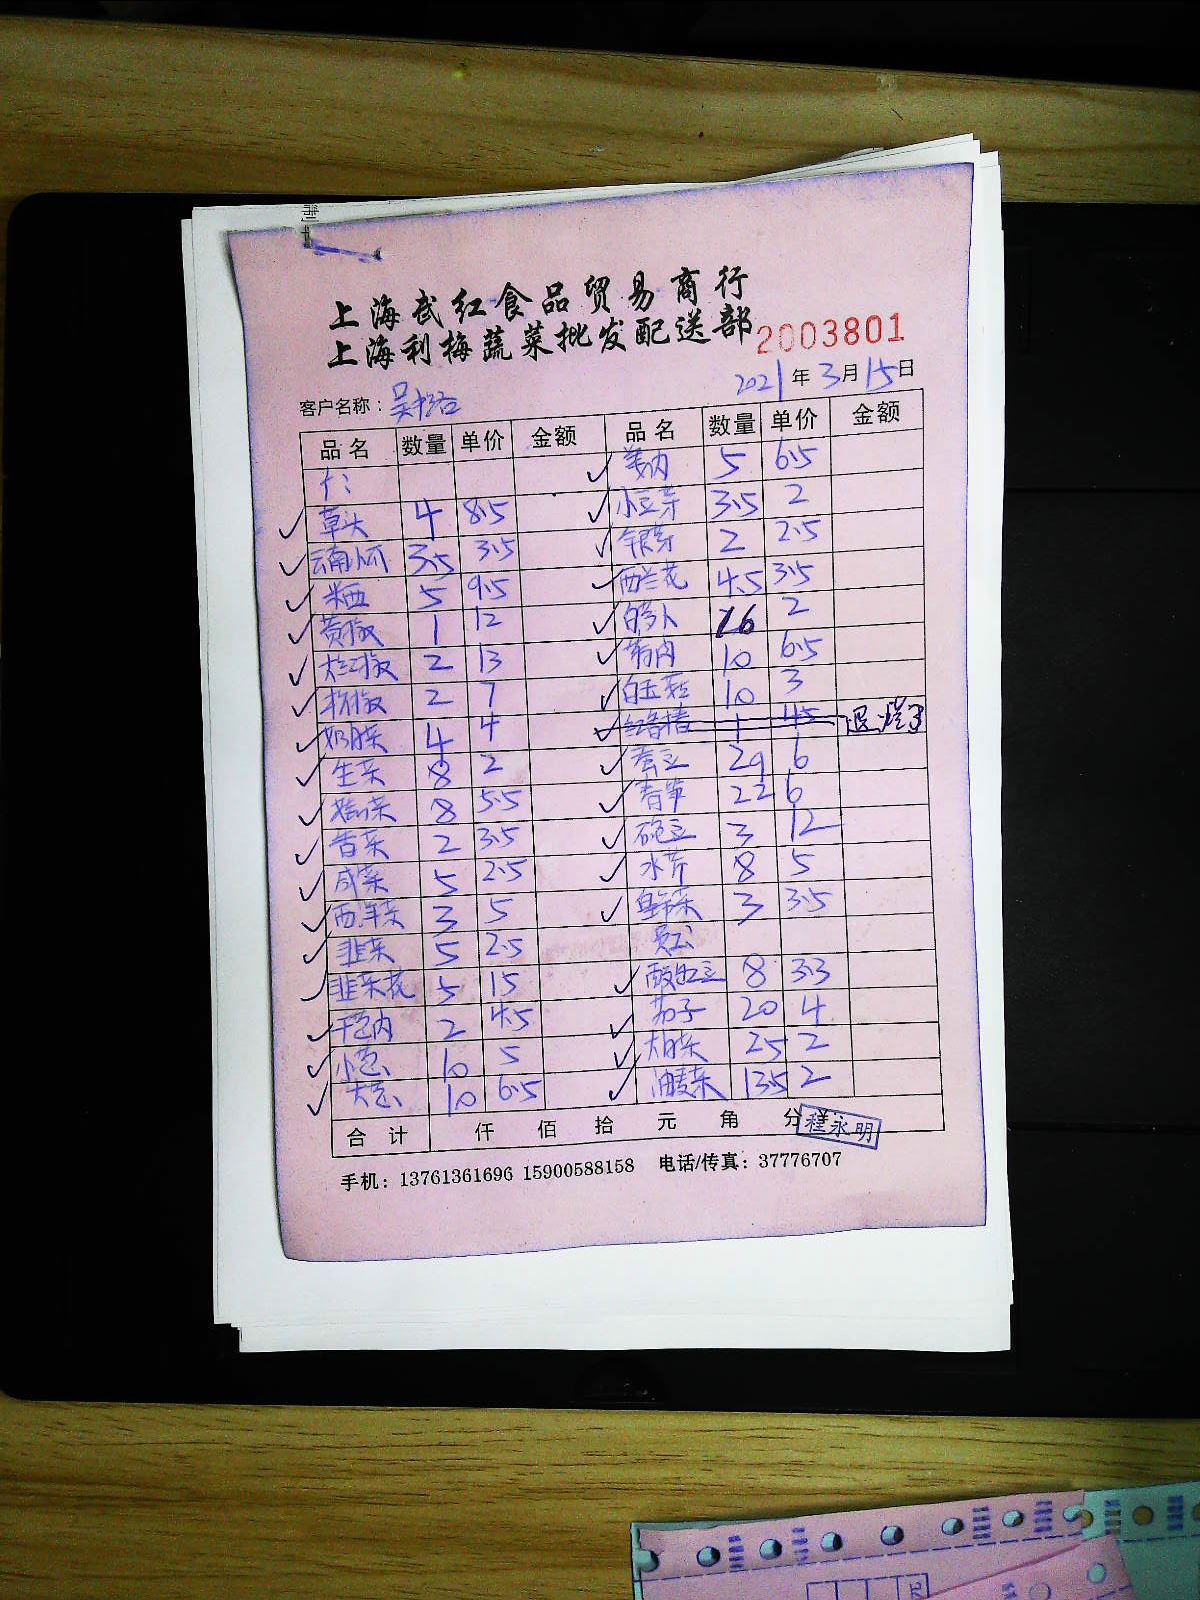 上海武红食品贸易商行
上海利梅蔬菜批发配送部 2003801
2021年3月15日
客户名称：
品名 数量 单价 金额 品名 数量 单价 金额
姜肉 5 6.5
草头 4 8.5 小豆芽 3.5 2
云南小瓜 3.5 3.5 银芽 2 2.5
米西 5 9.5 西兰花 4.5 3.5
黄椒 1 12 白萝卜 16 2
大红椒 2 13 10 6.5
杭椒 2 7 白玉菇 10 3
奶白菜 4 4 1 4.5 退
生菜 8 2 29 6
8 5.5 春笋 22 6
香菜 2 3.5 豌豆 3 12
咸菜 5 2.5 水芹 8 5
西洋菜 3 5 3 3.5
韭菜 5 2.5 员工
韭菜花 5 15 酸豇豆 8 3.3
2 4.5 茄子 20 4
小葱 10 5 大白菜 25 2
大葱 10 6.5 油麦菜 13.5 2
合计 仟 佰 拾 元 角 分
程永明
手机：13761361696 15900588158 电话/传真：37776707